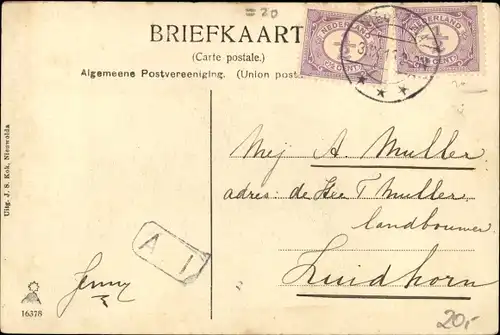 =20
BRIEFKAART
(Carte postale.)
Algemeene Postvereeniging. (Union post
NEDERLAND
½ CENT
NEDERLAND
½ CENT
Mej A. Muller
adres: de Heer T Muller
landbouwer
Zuidhorn
A 1
Jenny
Uitg. J. S. Kok, Nieuwolda
16378
20,-